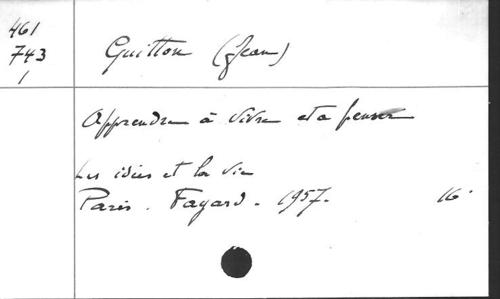 461
743
1
Guitton (Jean)
Apprendre à vivre et à penser
Les idées et la vie
Paris. Fayard. 1957.
16°